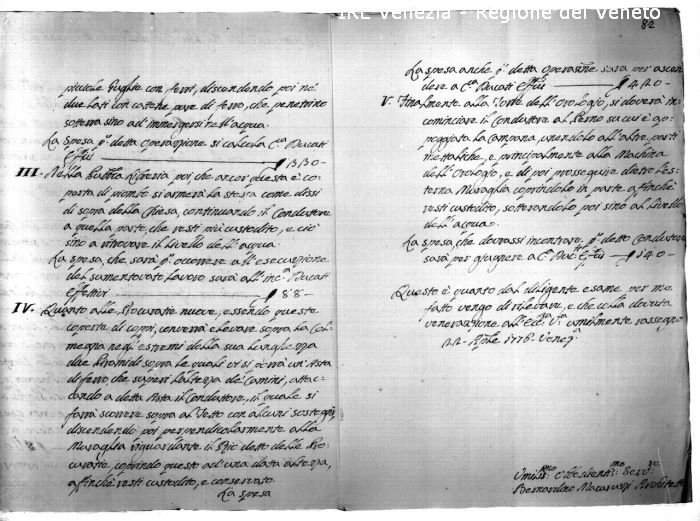 IRE Venezia - Regione del Veneto
82
piccole Guglie con ferri, discendendo poi ne'
due lati con cattene pure di ferro, che penetrino
sotterra sino ad immergersi nell'acqua.
La Spesa pr. detta Operazione si calcola Ca. Ducati
Effvi D 1330-
III. Nella Pubblica Libreria poi, che ancor questa è co-
perta di piombo si armerà la stessa come dissi
di sopra della Chiesa, continuando il Conduttore
a quella parte, che resti più custodito, e ciò
sino a ritrovare il Livello dell'acqua.
La spesa, che sarà pr. occorrere all'esecuzione
del sumentovato lavoro sarà all'inca. Ducati
Effettivi D 88-
IV. Quanto alle Procuratie nuove, essendo queste
coperte di coppi, converrà elevare sopra la Col-
megna negl'estremi della sua lunghezza
due Piramidi sopra le quali vi si ergerà un'Asta
di ferro, che superi l'altezza de' Camini, attac-
cando a detta Asta il Conduttore, il quale si
farà scorrere sopra al Tetto con alcuni sostegni,
discendendo poi perpendicolarmente alla
Muraglia riguardante il Rio detto delle Pro-
curatie, coprindo questo ad una data altezza,
affinchè resti custodito, e conservato.
La spesa
La spesa anche pr. detta operazione sarà per ascen-
dere a Ca. Ducati Effvi D 420-
V. Finalmente alla Torre dell'Orologio, si doverà in-
cominciare il Conduttore al Perno su cui è ap-
poggiata la Campana, unendolo all'altre parti
mettaliche, e principalmente alla Machina
dell'Orologio, e di poi proseguire dietro l'es-
terna Muraglia coprindolo in parte affinchè
resti custodito, sotterandolo poi sino al livello
dell'acqua.
La spesa, che dovrassi incontrare pr. detto Conduttore
sarà per giugnere a Ca. Duc.ti Effvi D 140-
Questo è quanto dal diligente esame per me
fatto vengo di rilevare, e che colla dovuta
venerazione all'Ecc.za V.a umilmente rassegno
22. Aprle. 1776. Venez.
Umilis.mo Obbedientis.mo Serv.
Bernardino Macaruzzi Architetto